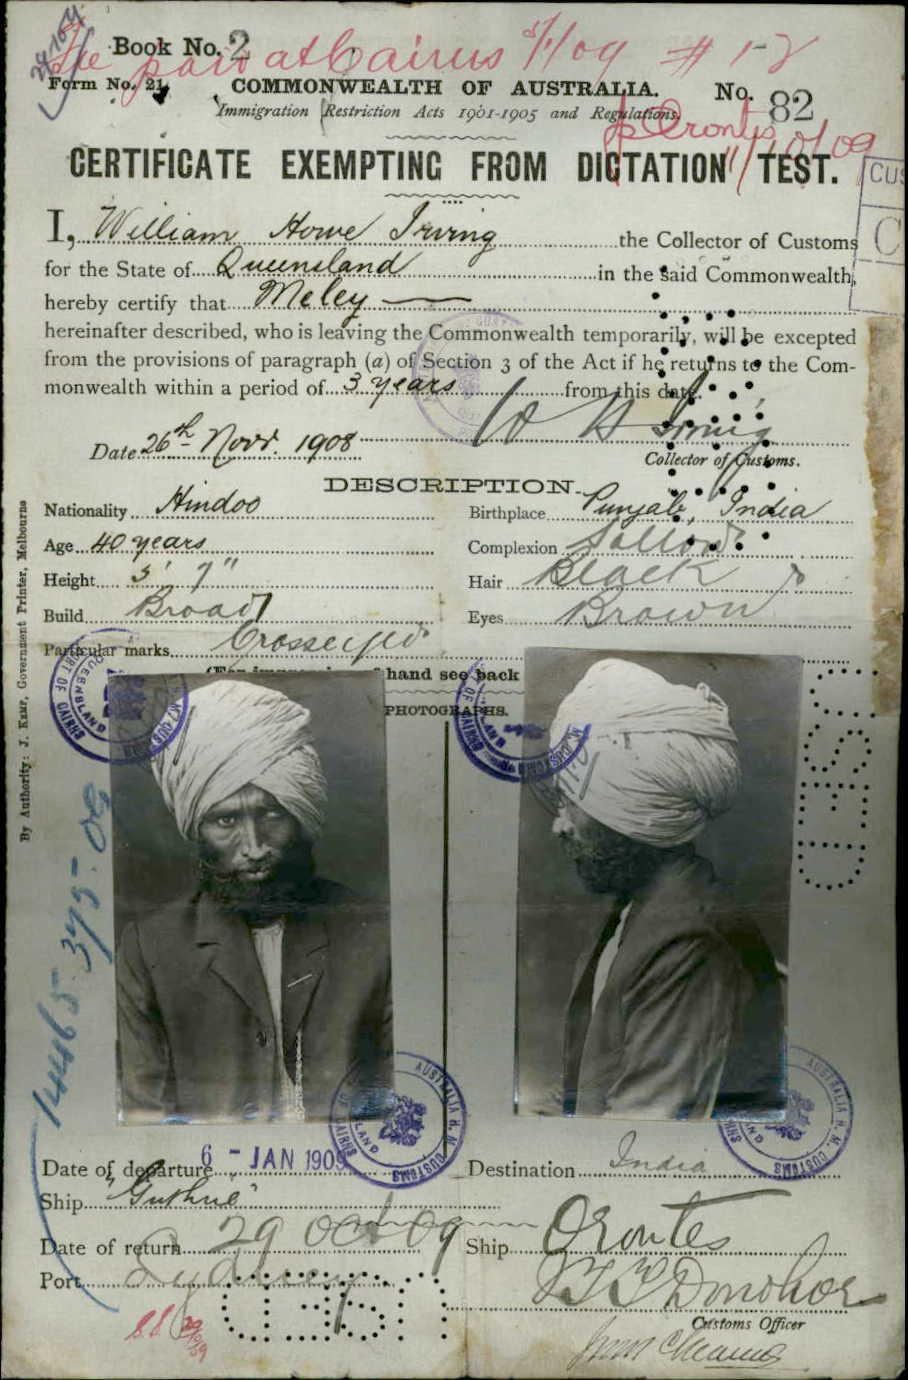 Book No. 2
pass at Cairns 5/1/09 # 1-2
Form No. 21.
COMMONWEALTH OF AUSTRALIA. No. 82
Immigration Restriction Acts 1901-1905 and Regulations.
Orontes
CERTIFICATE EXEMPTING FROM DICTATION TEST.
CUS
C
I, William Howe Irving the Collector of Customs
for the State of Queensland in the said Commonwealth,
hereby certify that Meley
hereinafter described, who is leaving the Commonwealth temporarily, will be excepted
from the provisions of paragraph (a) of Section 3 of the Act if he returns to the Com-
monwealth within a period of 3 years from this date.
W H Irving
Date 26th Novr. 1908
Collector of Customs.
DESCRIPTION.
Nationality Hindoo Birthplace Punjab, India
Age 40 years Complexion Sallow
Height 5' 7" Hair Black
Build Broad Eyes Brown
Particular marks Crosseyed
hand see back
PHOTOGRAPHS.
PORT OF CAIRNS QUEENSLAND
By Authority: J. Kemp, Government Printer, Melbourne
1465 375-08
USED
AUSTRALIA H.M. CUSTOMS
Date of departure 6 - JAN 1909 Destination India
Ship "Guthrie"
Date of return 29 Oct 09 Ship Orontes
Port Sydney
USED
T T Donohoe
Customs Officer
29/10/09